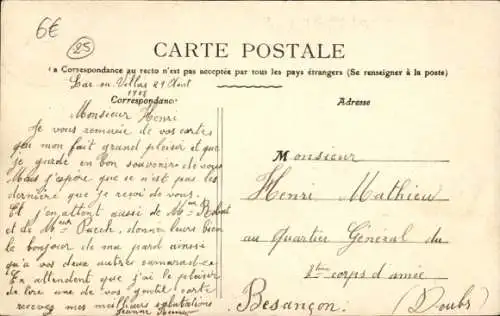 6€
25
CARTE POSTALE
La Correspondance au recto n'est pas acceptée par tous les pays étrangers (Se renseigner à la poste)
Villers 21 Août
1908
Correspondance
Adresse
Monsieur Henri
Je vous remercie de vos cartes
qui mon fait grand plaisir et que
je garde en bon souvenire de vous
Mais j'espère que se n'est pas les
dernière que je reçoi de vous.
Et j'en attent aussi de Mr Robert
et de Mr donner leurs bien
le bonjour de ma pard ainssi
qu'a vos deux autres camarad
En attendent que j'ai le plaisir
de lire une de vos gentil carte
recevez mes meilleurs salutations
Jeanne
Monsieur
Henri Mathieu
au Quartier Général du
corps d'amée
Besançon. (Doubs)